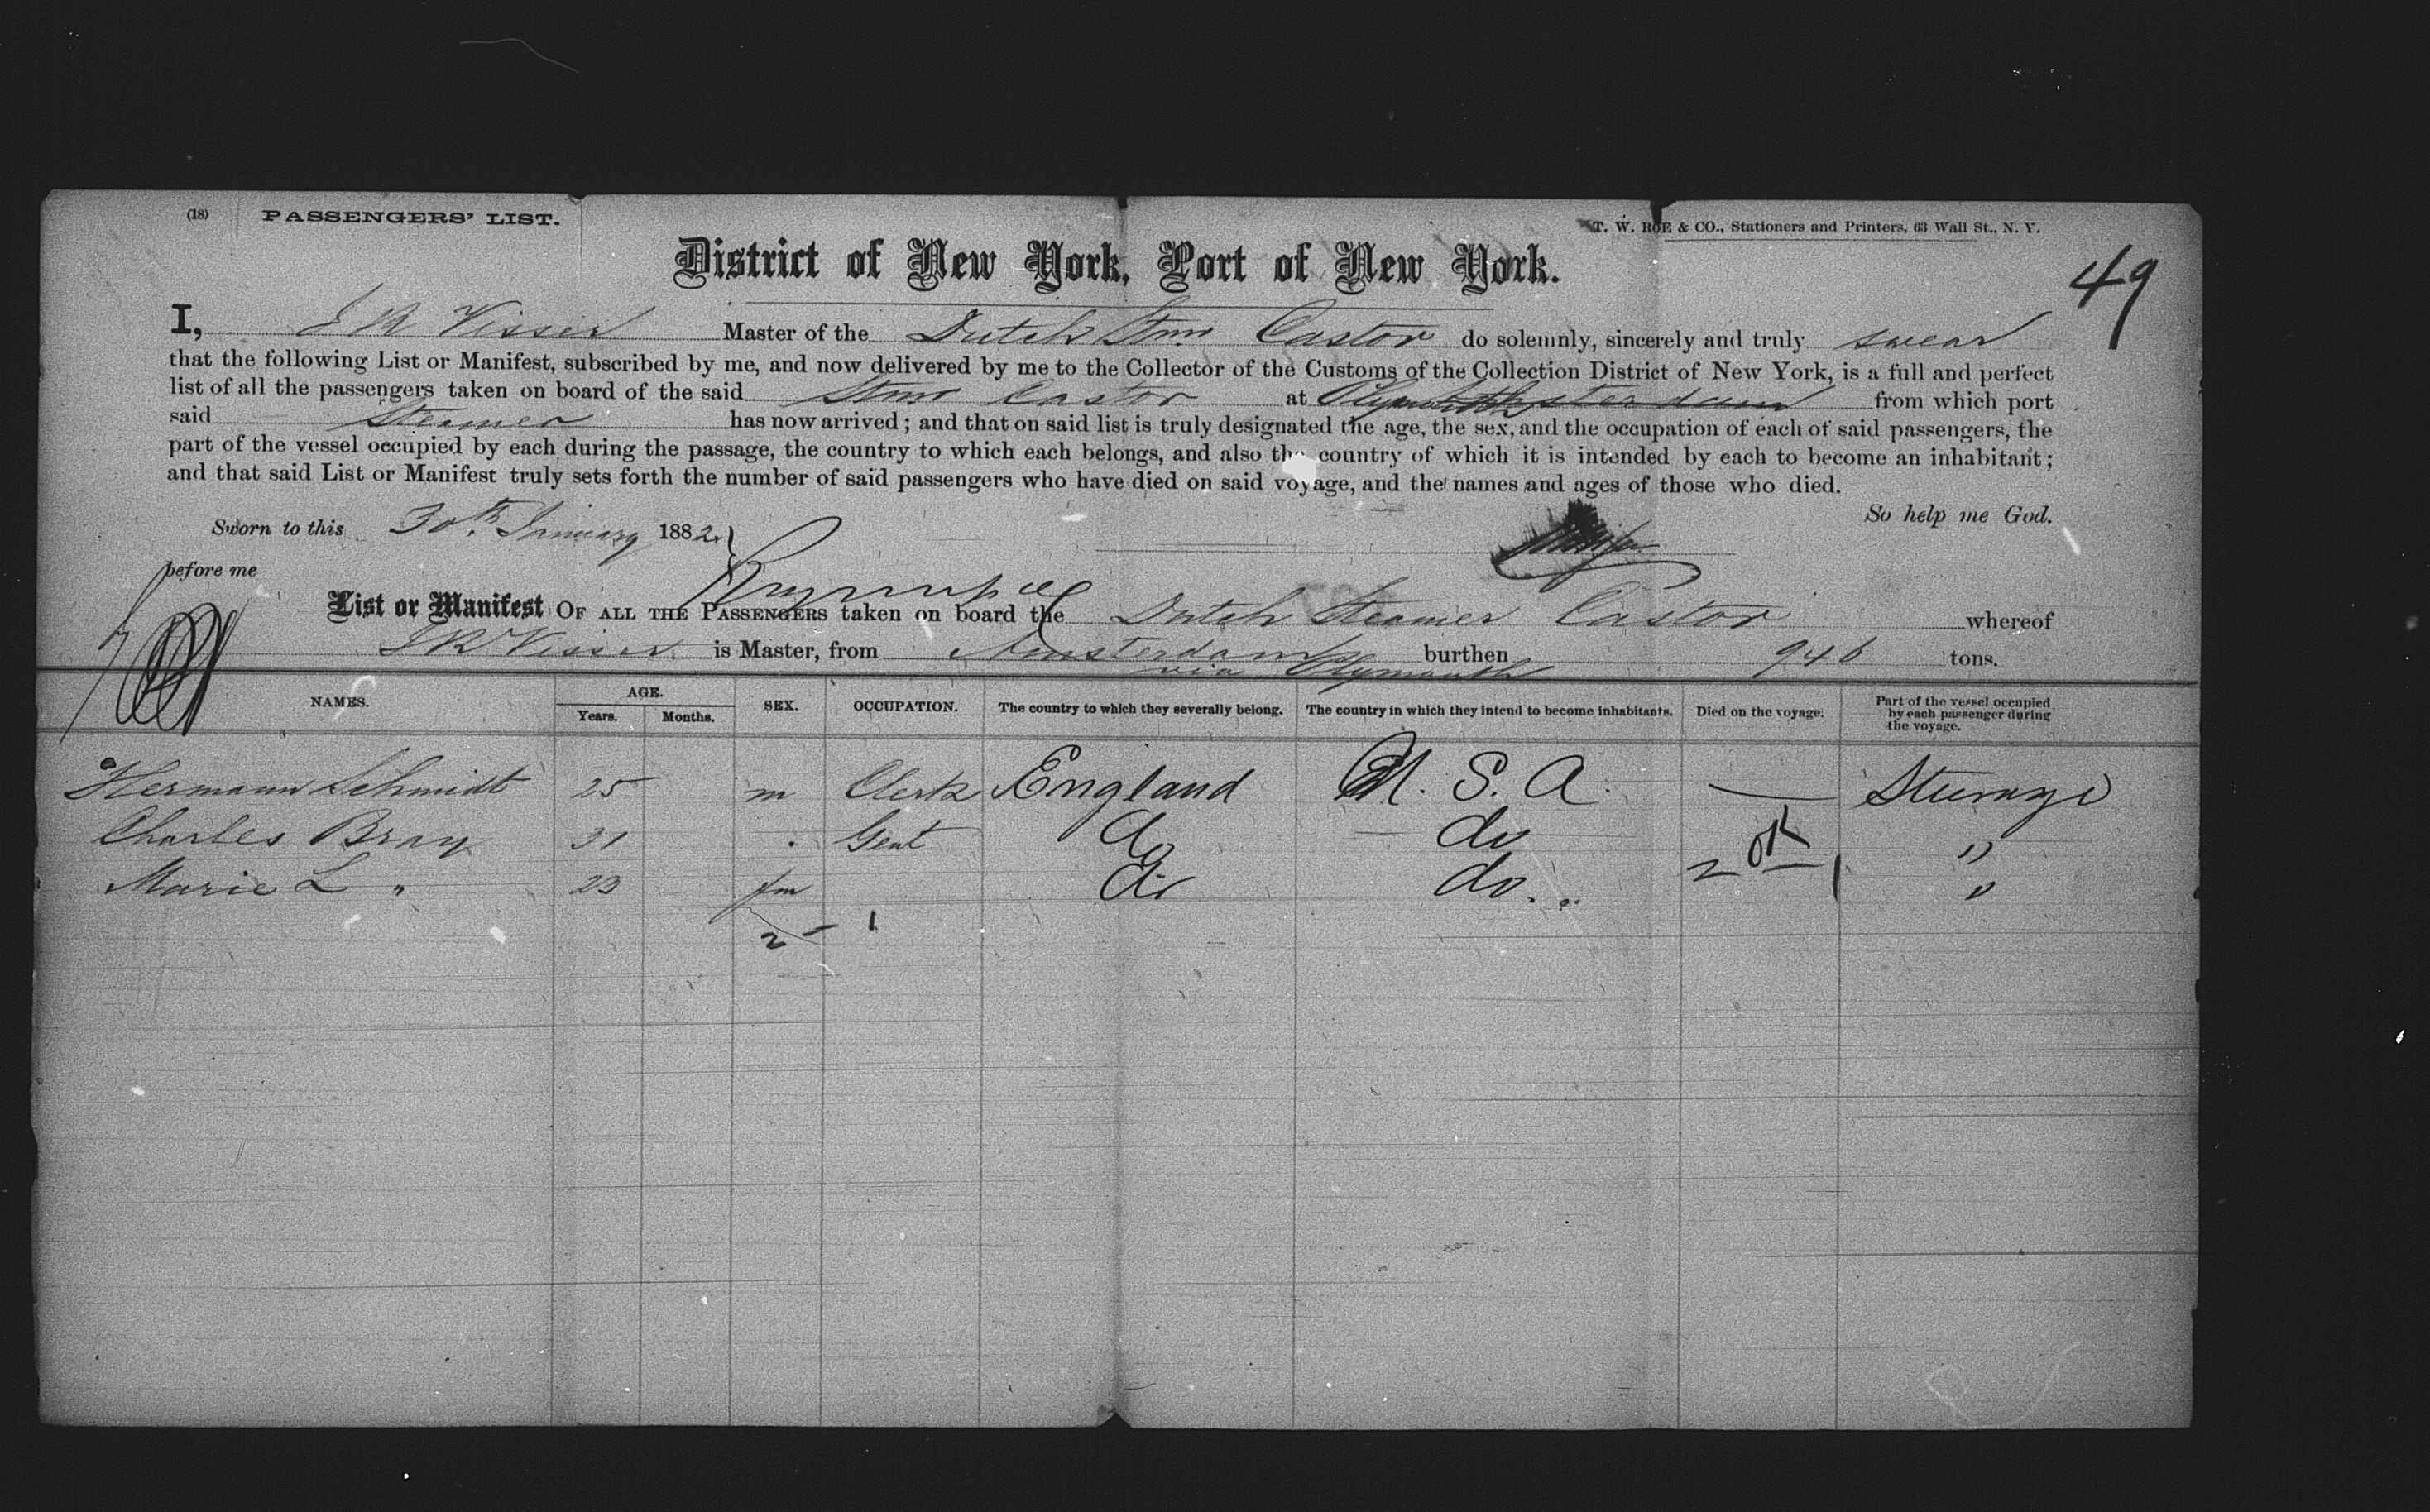 (18) PASSENGERS' LIST.
T. W. ROE & CO., Stationers and Printers, 63 Wall St., N. Y.
District of New York, Port of New York.
49
I, J R Visser Master of the Dutch Stmr Castor do solemnly, sincerely and truly swear
that the following List or Manifest, subscribed by me, and now delivered by me to the Collector of the Customs of the Collection District of New York, is a full and perfect
list of all the passengers taken on board of the said Stmr Castor at from which port
said Steamer has now arrived; and that on said list is truly designated the age, the sex, and the occupation of each of said passengers, the
part of the vessel occupied by each during the passage, the country to which each belongs, and also the country of which it is intended by each to become an inhabitant;
and that said List or Manifest truly sets forth the number of said passengers who have died on said voyage, and the names and ages of those who died.
So help me God.
Sworn to this 30th January 1882.
before me
List or Manifest OF ALL THE PASSENGERS taken on board the Dutch Steamer Castor whereof
J R Visser is Master, from Amsterdam burthen 946 tons.
via Plymouth
NAMES. AGE. Years. Months. SEX. OCCUPATION. The country to which they severally belong. The country in which they intend to become inhabitants. Died on the voyage. Part of the vessel occupied by each passenger during the voyage.
Hermann Schmidt 25 m Clerk England U. S. A. — Steerage
Charles Bray 31 " Gent do do "
Marie L " 23 fm do do. "
ok
2 — 1
2 — 1